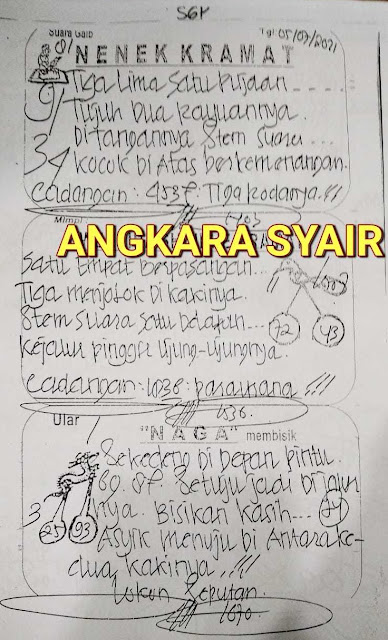 SGP
Suara Gaib
Tgl 05/07/2021
NENEK KRAMAT
Tiga Lima Satu
Tujuh Dua Rayuannya.
Ditangannya Stem Suara...
34 Kocok di Atas berkemenangan.
Cadangan: 4538: Tiga Kodanya.!!!
Mimpi
ANGKARA SYAIR
Satu Empat Berpasangan...
Tiga menjolok Di Kakinya.
Stem Suara Satu Delapan...
72
43
Kejalur pinggir Ujung-Ujungnya.
Cadangan: 1036: !!!
1036.
Ular
"NAGA" membisik
Sekedeng Di Depan Pintu.
60. 87. Setuju Jadi Di
nya. Bisikan Kasih...
3
25
93
Asyik menuju Di Antara Ke-
dua Kakinya.!!!
1070